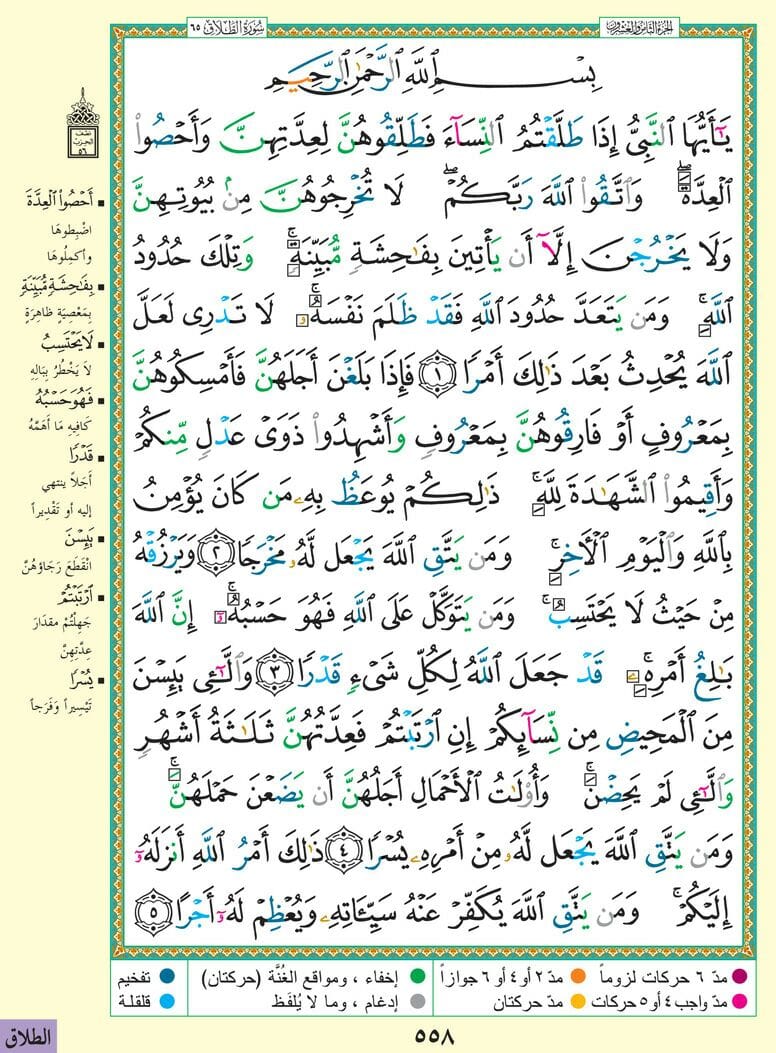 سُورَةُ الطَّلَاقِ ٦٥
الجزء الثامن والعشرون
بِسْمِ اللَّهِ الرَّحْمَٰنِ الرَّحِيمِ
يَٰٓأَيُّهَا النَّبِيُّ إِذَا طَلَّقْتُمُ النِّسَآءَ فَطَلِّقُوهُنَّ لِعِدَّتِهِنَّ وَأَحْصُوا۟
الْعِدَّةَ ۖ وَاتَّقُوا۟ اللَّهَ رَبَّكُمْ ۖ لَا تُخْرِجُوهُنَّ مِنۢ بُيُوتِهِنَّ
وَلَا يَخْرُجْنَ إِلَّآ أَن يَأْتِينَ بِفَٰحِشَةٍ مُّبَيِّنَةٍ ۚ وَتِلْكَ حُدُودُ
اللَّهِ ۚ وَمَن يَتَعَدَّ حُدُودَ اللَّهِ فَقَدْ ظَلَمَ نَفْسَهُۥ ۚ لَا تَدْرِى لَعَلَّ
اللَّهَ يُحْدِثُ بَعْدَ ذَٰلِكَ أَمْرًا ١ فَإِذَا بَلَغْنَ أَجَلَهُنَّ فَأَمْسِكُوهُنَّ
بِمَعْرُوفٍ أَوْ فَارِقُوهُنَّ بِمَعْرُوفٍ وَأَشْهِدُوا۟ ذَوَىْ عَدْلٍ مِّنكُمْ
وَأَقِيمُوا۟ الشَّهَٰدَةَ لِلَّهِ ۚ ذَٰلِكُمْ يُوعَظُ بِهِۦ مَن كَانَ يُؤْمِنُ
بِاللَّهِ وَالْيَوْمِ الْءَاخِرِ ۚ وَمَن يَتَّقِ اللَّهَ يَجْعَل لَّهُۥ مَخْرَجًا ٢ وَيَرْزُقْهُ
مِنْ حَيْثُ لَا يَحْتَسِبُ ۚ وَمَن يَتَوَكَّلْ عَلَى اللَّهِ فَهُوَ حَسْبُهُۥٓ ۚ إِنَّ اللَّهَ
بَٰلِغُ أَمْرِهِۦ ۚ قَدْ جَعَلَ اللَّهُ لِكُلِّ شَىْءٍ قَدْرًا ٣ وَالَّٰٓـِٔى يَئِسْنَ
مِنَ الْمَحِيضِ مِن نِّسَآئِكُمْ إِنِ ارْتَبْتُمْ فَعِدَّتُهُنَّ ثَلَٰثَةُ أَشْهُرٍ
وَالَّٰٓـِٔى لَمْ يَحِضْنَ ۚ وَأُو۟لَٰتُ الْأَحْمَالِ أَجَلُهُنَّ أَن يَضَعْنَ حَمْلَهُنَّ ۚ
وَمَن يَتَّقِ اللَّهَ يَجْعَل لَّهُۥ مِنْ أَمْرِهِۦ يُسْرًا ٤ ذَٰلِكَ أَمْرُ اللَّهِ أَنزَلَهُۥٓ
إِلَيْكُمْ ۚ وَمَن يَتَّقِ اللَّهَ يُكَفِّرْ عَنْهُ سَيِّـَٔاتِهِۦ وَيُعْظِمْ لَهُۥٓ أَجْرًا ٥
نصف
الحزب
٥٦
أَحْصُوا۟ الْعِدَّةَ
اضْبِطُوهَا
وأكمِلُوهَا
بِفَٰحِشَةٍ مُّبَيِّنَةٍ
بِمَعْصِيَةٍ ظاهِرَةٍ
لَا يَحْتَسِبُ
لَا يَخْطُرُ بِبَالِهِ
فَهُوَ حَسْبُهُ
كَافِيهِ مَا أَهَمَّهُ
قَدْرًا
أَجَلاً ينتهي
إليه أو تَقْدِيراً
يَئِسْنَ
انْقَطَعَ رَجَاؤهُنَّ
ارْتَبْتُمْ
جَهِلْتُمْ مقدَارَ
عِدَّتِهِنَّ
يُسْرًا
تَيْسِيراً وَفَرَجاً
مدّ ٦ حركات لزوماً
مدّ ٢ أو ٤ أو ٦ جوازاً
إخفاء ، ومواقع الغُنَّة (حركتان)
تفخيم
مدّ واجب ٤ أو ٥ حركات
مدّ حركتان
إدغام ، وما لا يُلفَظ
قلقلة
٥٥٨
الطلاق